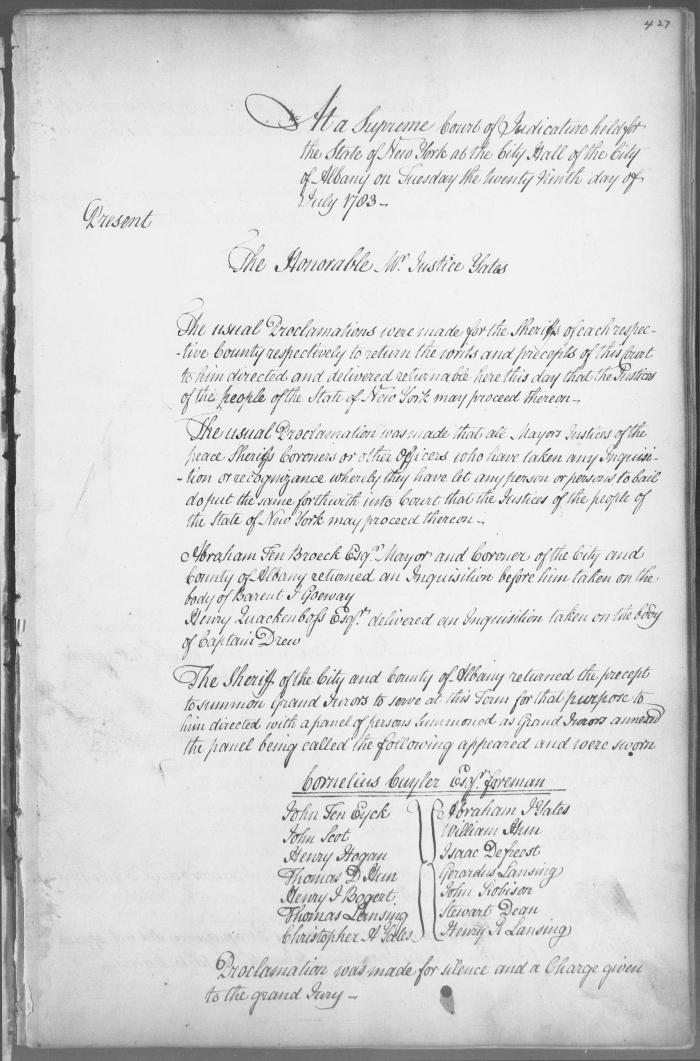 427
At a Supreme Court of Judicature held for
the State of New York at the City Hall of the City
of Albany on Tuesday the twenty Ninth day of
July 1783 –
Present
The Honorable Mr. Justice Yates
The usual Proclamations were made for the Sheriffs of each respec-
-tive County respectively to return the writs and precepts of this Court
to him directed and delivered returnable here this day that the Justices
of the people of the State of New York may proceed thereon –
The usual Proclamation was made that all Mayors Justices of the
peace Sheriffs Coroners or other Officers who have taken any Inquisi-
-tion or recognizance whereby they have let any person or persons to bail
do put the same forthwith into Court that the Justices of the people of
the State of New York may proceed thereon –
Abraham Ten Broeck Esqr. Mayor and Coroner of the City and
County of Albany returned an Inquisition before him taken on the
body of Barent J Goeway
Henry Quackenboss Esqr. delivered an Inquisition taken on the body
of Captain Drew
The Sheriff of the City and County of Albany returned the precept
to summon Grand Jurors to serve at this Term for that purpose to
him directed with a panel of persons summoned as Grand Jurors annexed
the panel being called the following appeared and were sworn
Cornelius Cuyler Esqr. foreman
John Ten Eyck
John Scot
Henry Hogan
Thomas D Hun
Henry J Bogert
Thomas Lansing
Christopher A Yates
Abraham J Yates
William Hun
Isaac Defreest
Gerardus Lansing
John Robison
Stewart Dean
Henry R Lansing
Proclamation was made for silence and a Charge given
to the grand Jury –